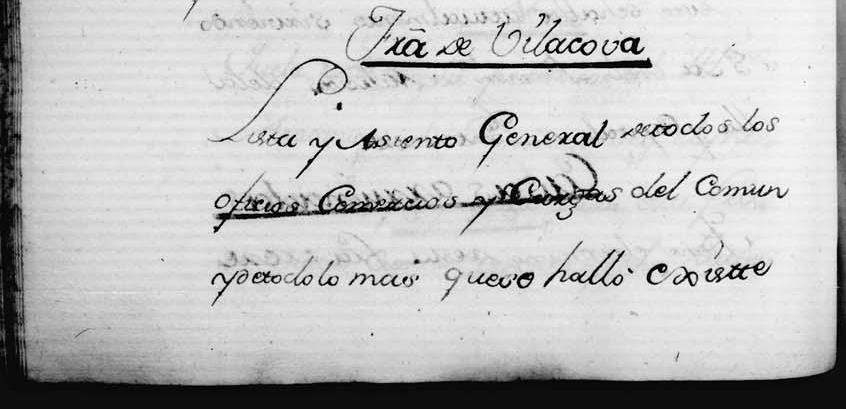 Frã de Vilacova
Lista y Asiento General detodos los
oficios Comercios y Cargas del Comun
ydetodolo mas quese halló Existte